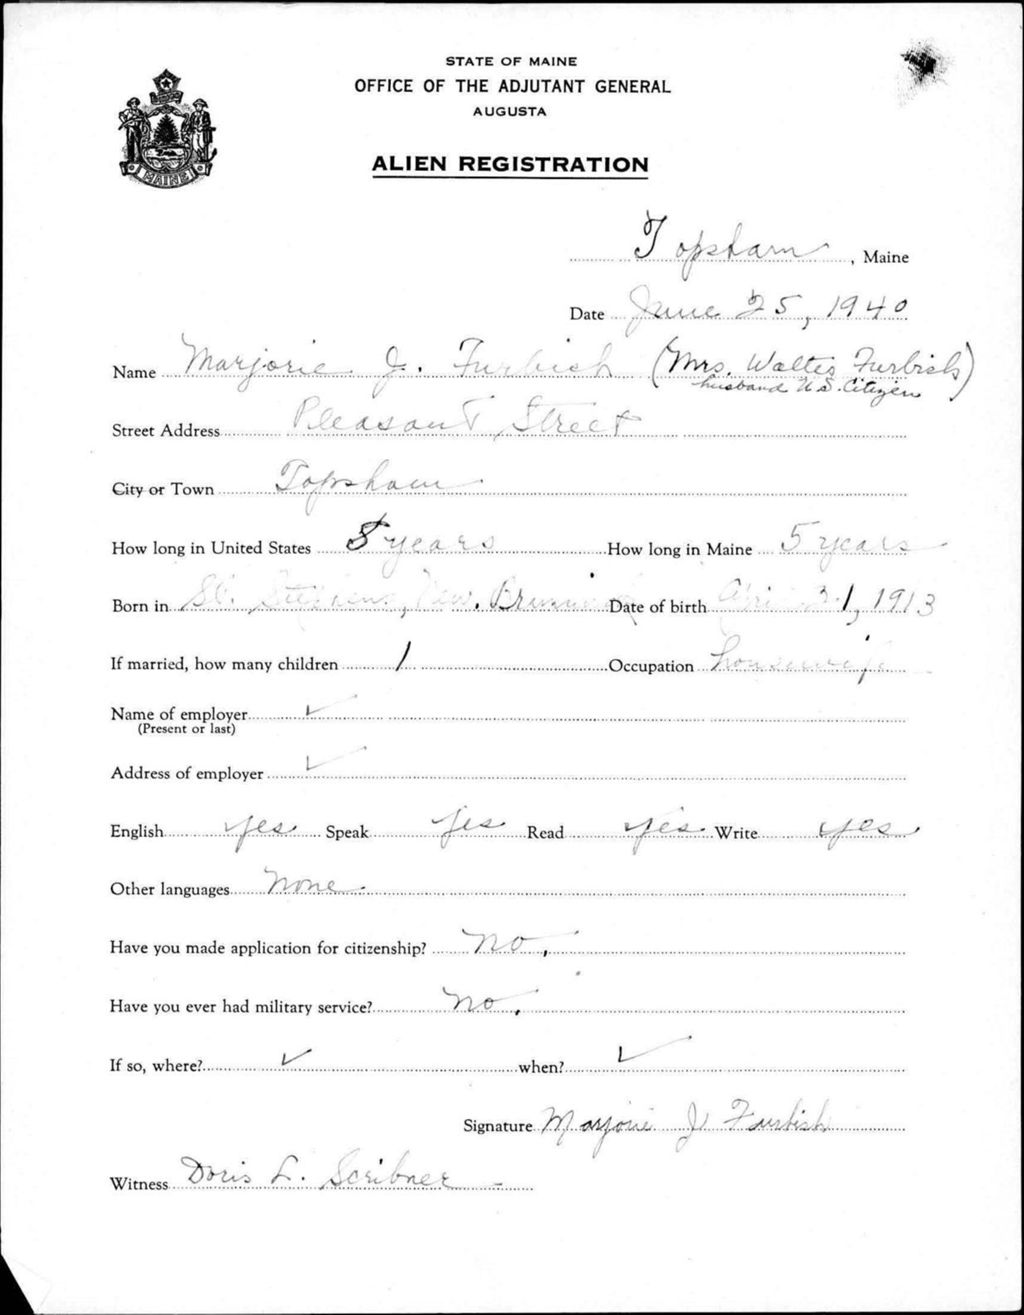 STATE OF MAINE
OFFICE OF THE ADJUTANT GENERAL
AUGUSTA
MAINE
ALIEN REGISTRATION
Topsham, Maine
Date June 25, 1940
Name Marjorie J. Furbish (Mrs. Walter Furbish)
husband U.S. Citizen
Street Address Pleasant Street
City or Town Topsham
How long in United States 5 years How long in Maine 5 years
Born in St. Stephens, New Brunswick Date of birth 1, 1913
If married, how many children 1 Occupation housewife
Name of employer
(Present or last)
Address of employer
English yes Speak yes Read yes Write yes
Other languages none.
Have you made application for citizenship? no.
Have you ever had military service? no.
If so, where? when?
Signature Marjorie J Furbish
Witness Doris L. Scribner